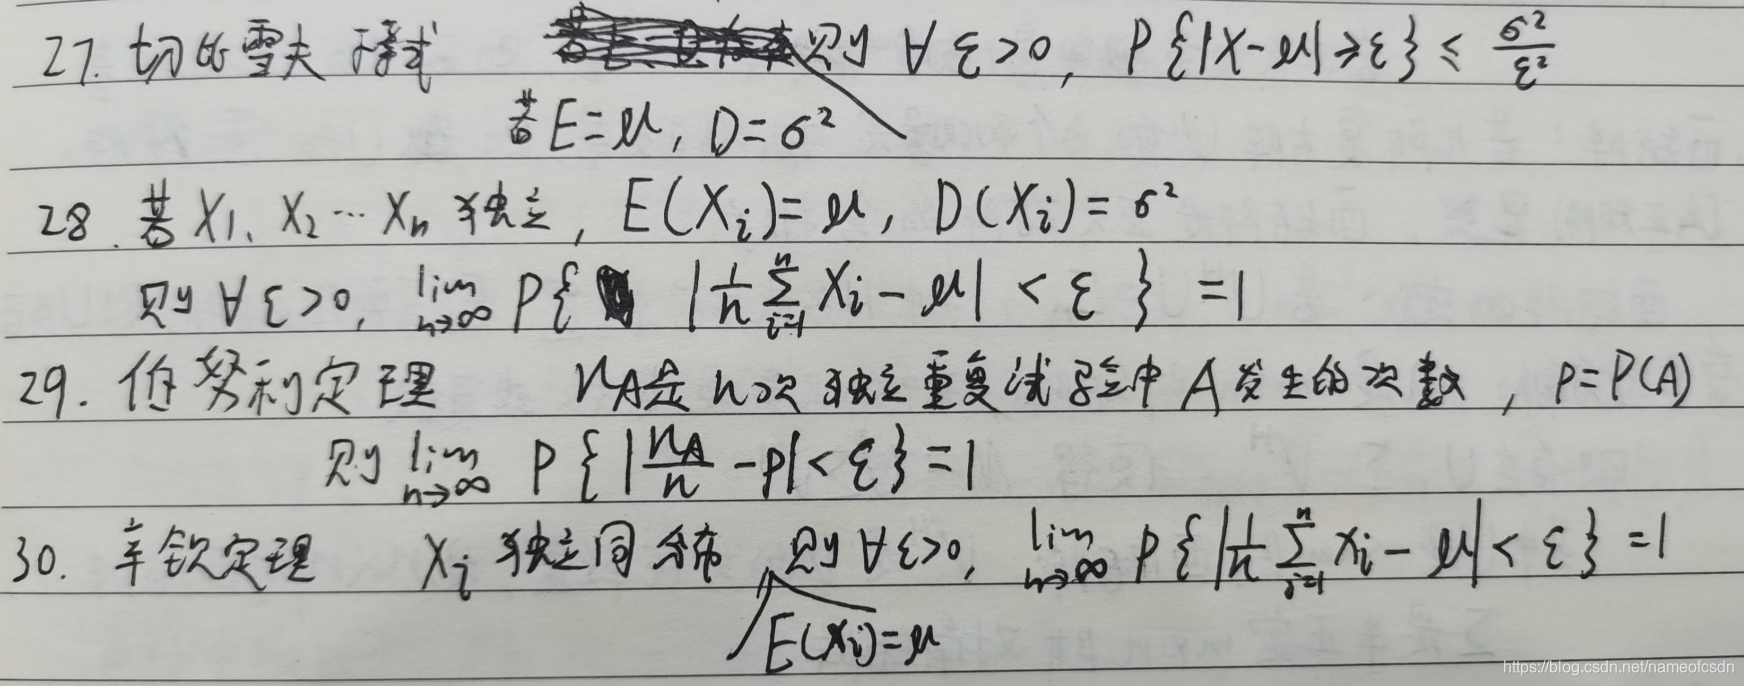 27. 切比雪夫不等式 则 ∀ε>0, P{|X-μ|≥ε} ≤ σ²/ε²
若E=μ, D=σ²
28. 若X₁、X₂…Xₙ独立, E(Xᵢ)=μ, D(Xᵢ)=σ²
则∀ε>0, lim_{n→∞} P{ |1/n ∑_{i=1}^{n} Xᵢ-μ| < ε } =1
29. 伯努利定理 n_A是n次独立重复试验中A发生的次数, p=P(A)
则 lim_{n→∞} P{|n_A/n -p|<ε}=1
30. 辛钦定理 Xᵢ独立同分布, 则∀ε>0, lim_{n→∞} P{|1/n ∑_{i=1}^{n} xᵢ-μ|<ε}=1
E(xᵢ)=μ
https://blog.csdn.net/nameofcsdn